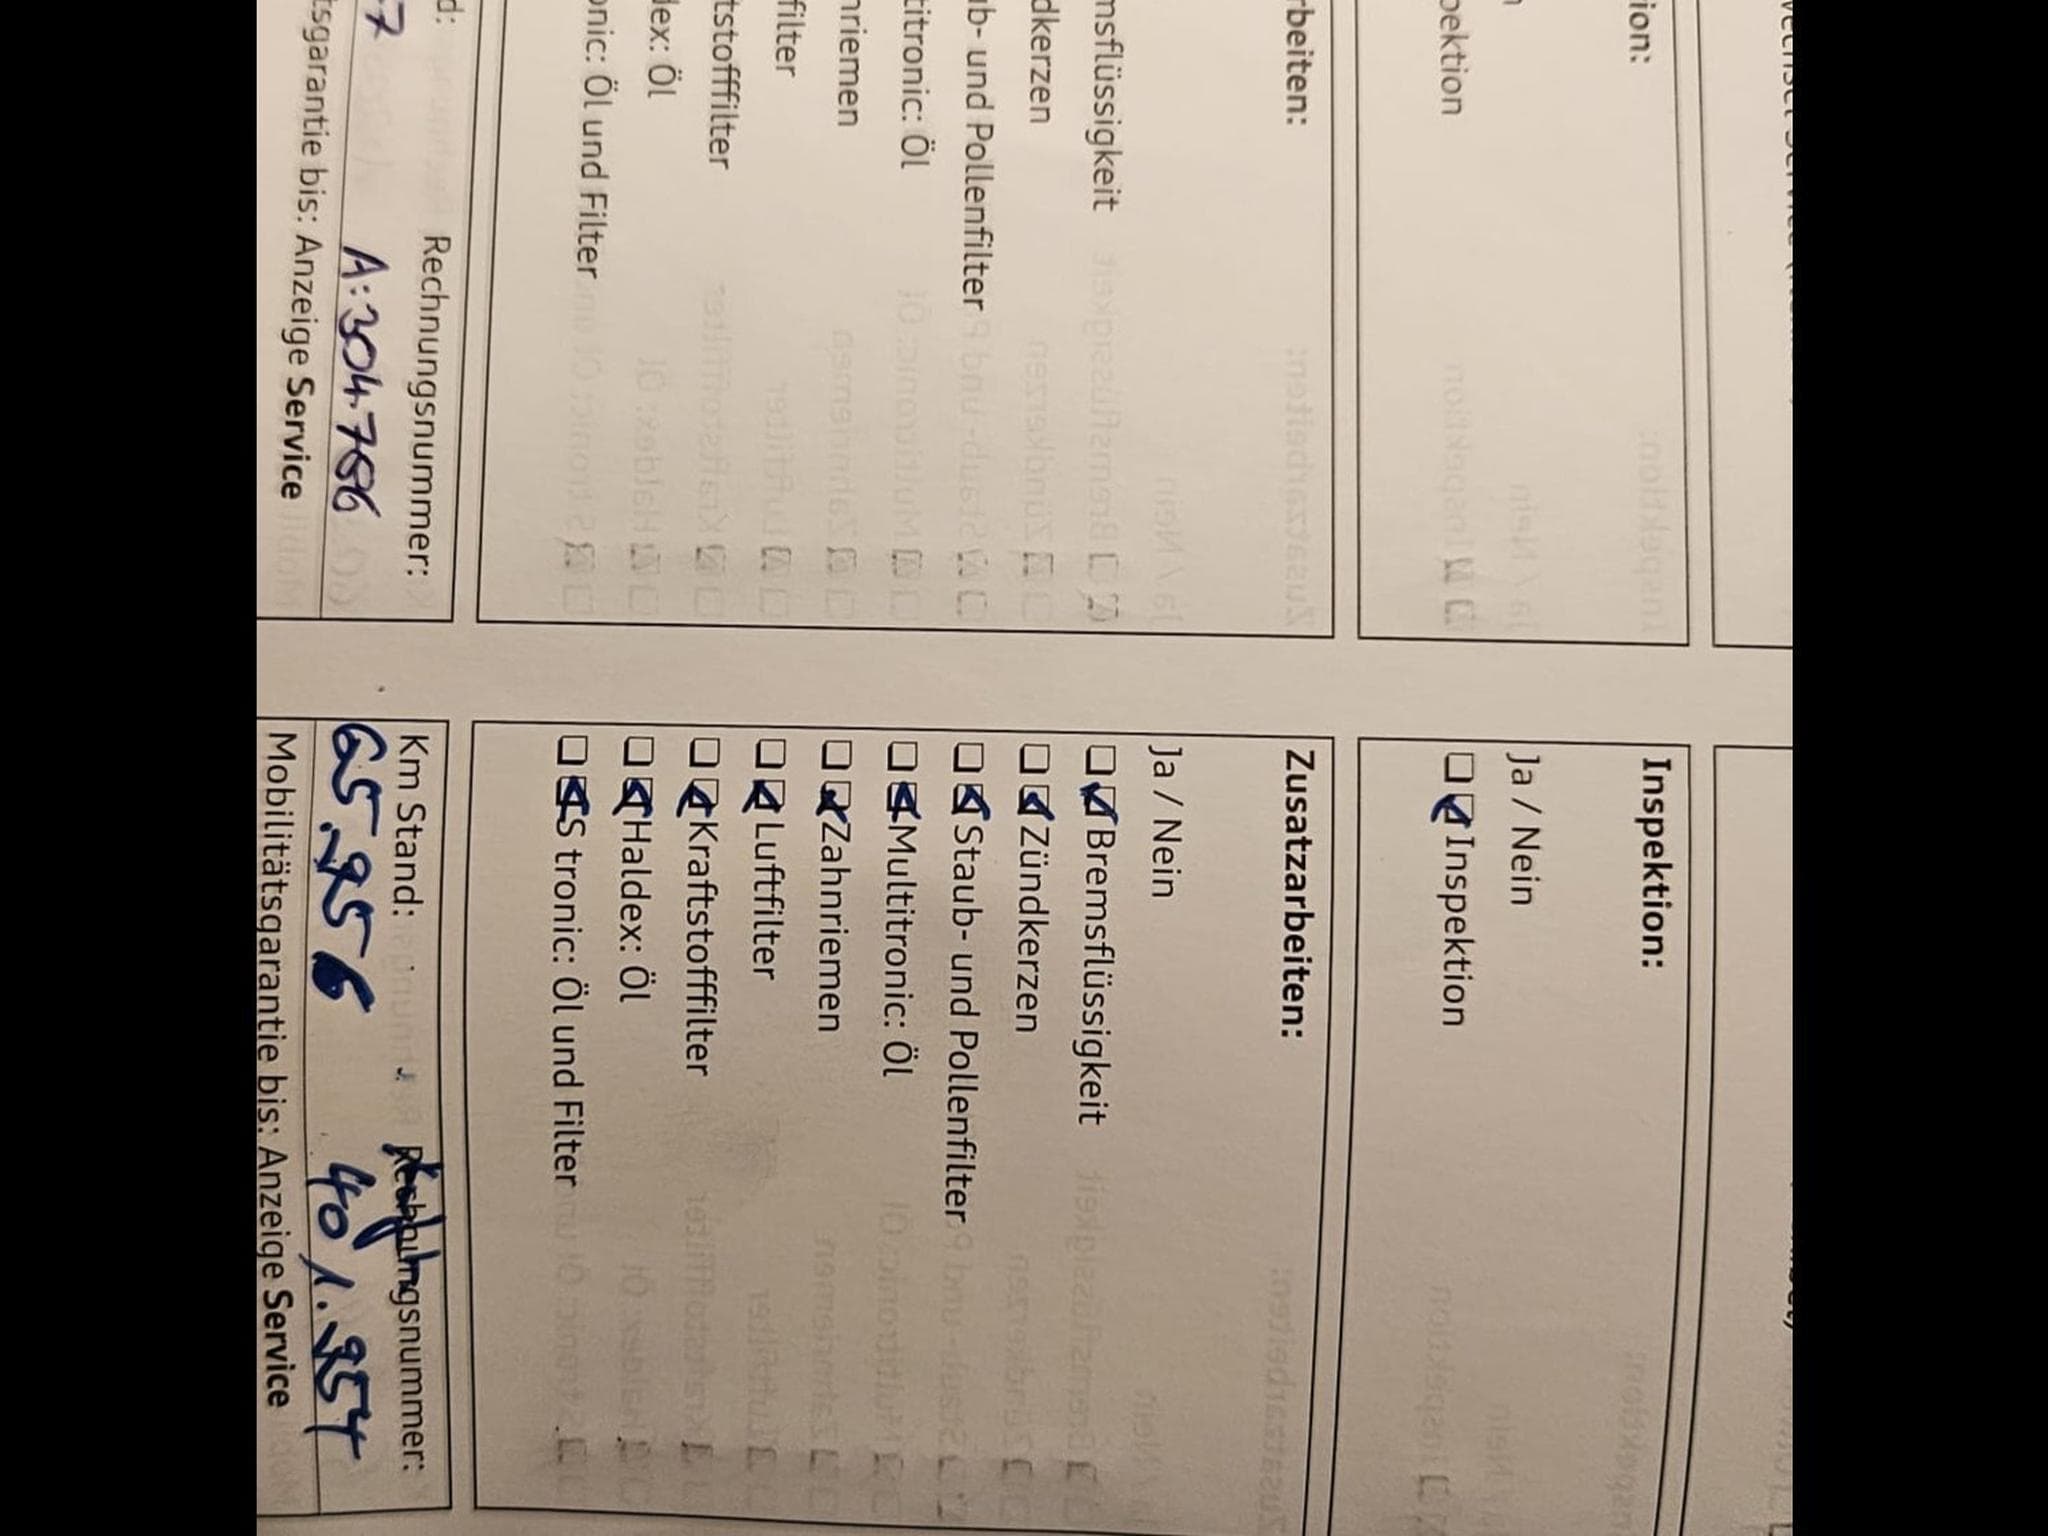 ion:
n
pektion
rbeiten:
nsflüssigkeit
dkerzen
ub- und Pollenfilter
titronic: Öl
nriemen
filter
tstofffilter
dex: Öl
onic: Öl und Filter
d: Rechnungsnummer:
7 A:304.766
tsgarantie bis: Anzeige Service
Inspektion:
Ja / Nein
Inspektion
Zusatzarbeiten:
Ja / Nein
Bremsflüssigkeit
Zündkerzen
Staub- und Pollenfilter
Multitronic: Öl
Zahnriemen
Luftfilter
Kraftstofffilter
Haldex: Öl
S tronic: Öl und Filter
Km Stand: Rechnungsnummer:
65.956 401.954
Mobilitätsgarantie bis: Anzeige Service